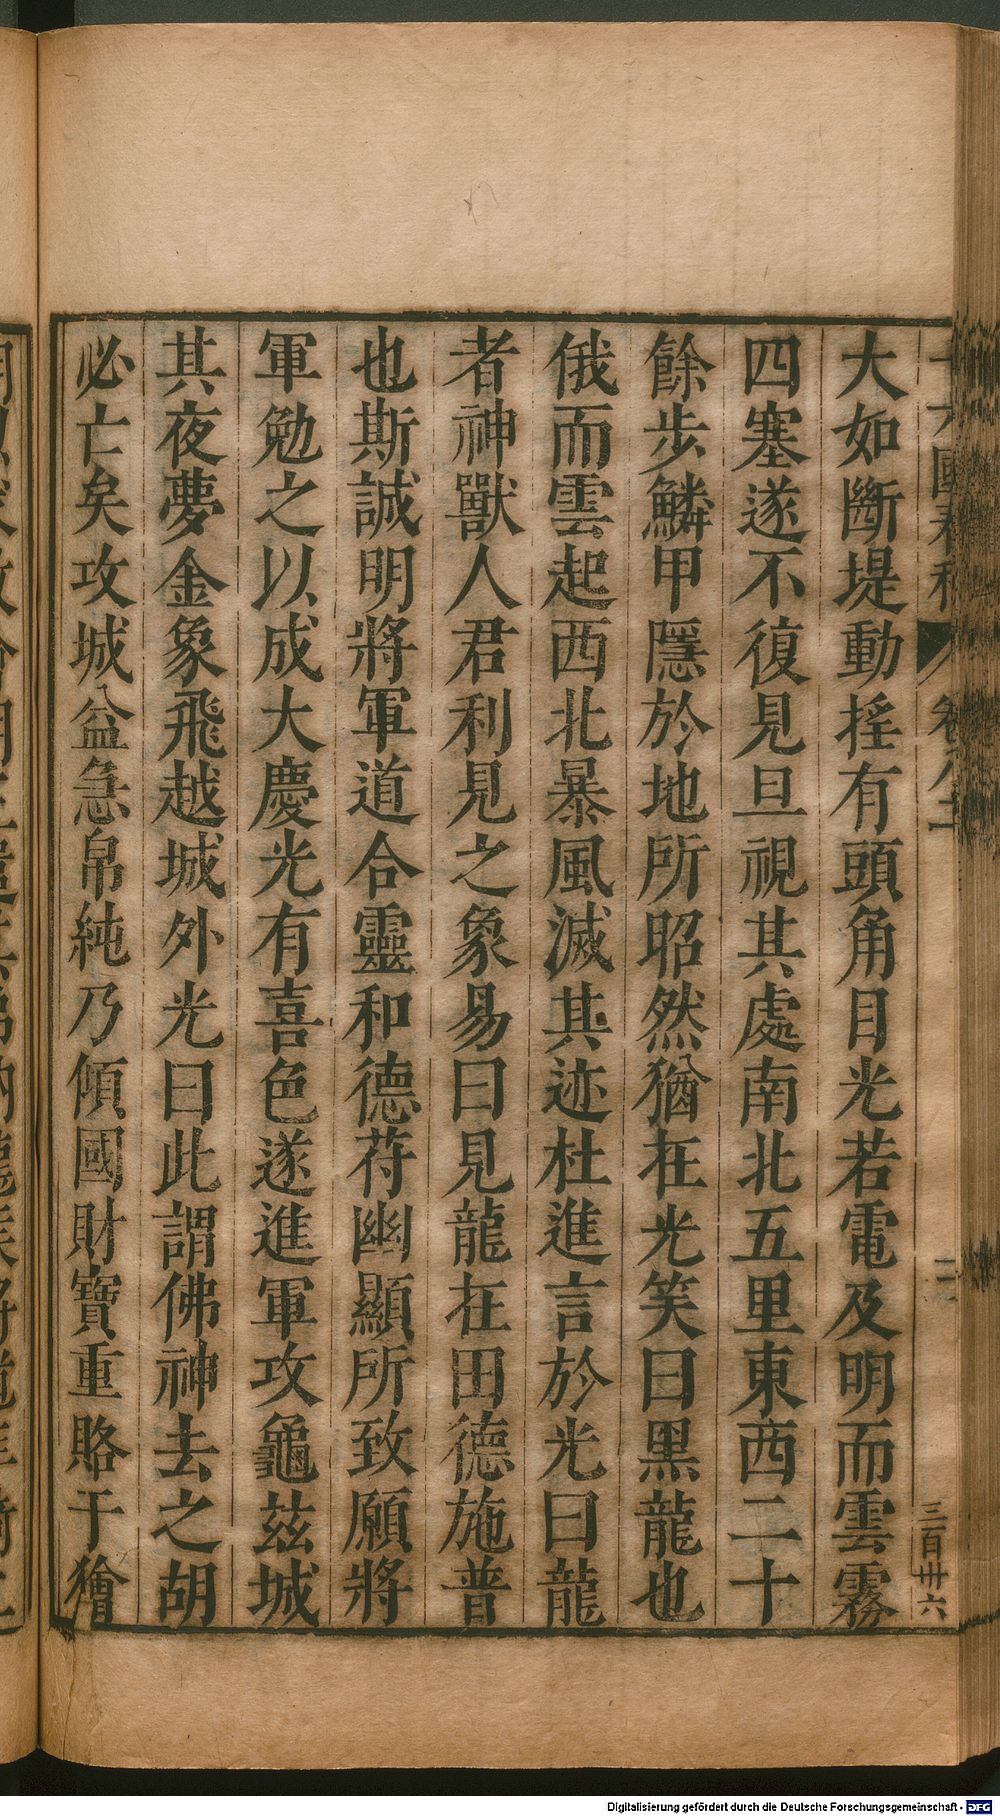 大如斷堤動搖有頭角目光若電及明而雲霧
四塞遂不復見旦視其處南北五里東西二十
餘步鱗甲隱於地所昭然猶在光笑曰黑龍也
俄而雲起西北暴風滅其迹杜進言於光曰龍
者神獸人君利見之象易曰見龍在田德施普
也斯誠明將軍道合靈和德苻幽顯所致願將
軍勉之以成大慶光有喜色遂進軍攻龜茲城
其夜夢金象飛越城外光曰此謂佛神去之胡
必亡矣攻城益急帛純乃傾國財寶重賂于獪
三百卅六
Digitalisierung gefördert durch die Deutsche Forschungsgemeinschaft - DFG